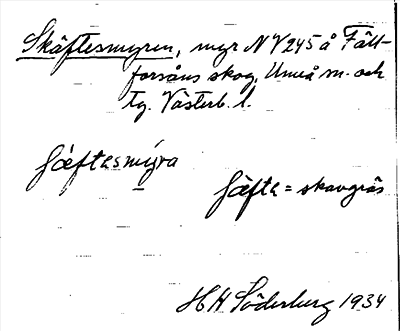 Skäftesmyren, myr NV 245 å Fält-
forsåns skog, Umeå m. och
tg. Västerb. l.
ʃäftesmýra
ʃäfte = skavgräs
H H Söderberg 1934